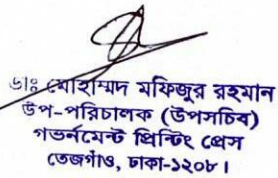 ডাঃ মোহাম্মদ মফিজুর রহমান
উপ-পরিচালক (উপসচিব)
গভর্নমেন্ট প্রিন্টিং প্রেস
তেজগাঁও, ঢাকা-১২০৮।